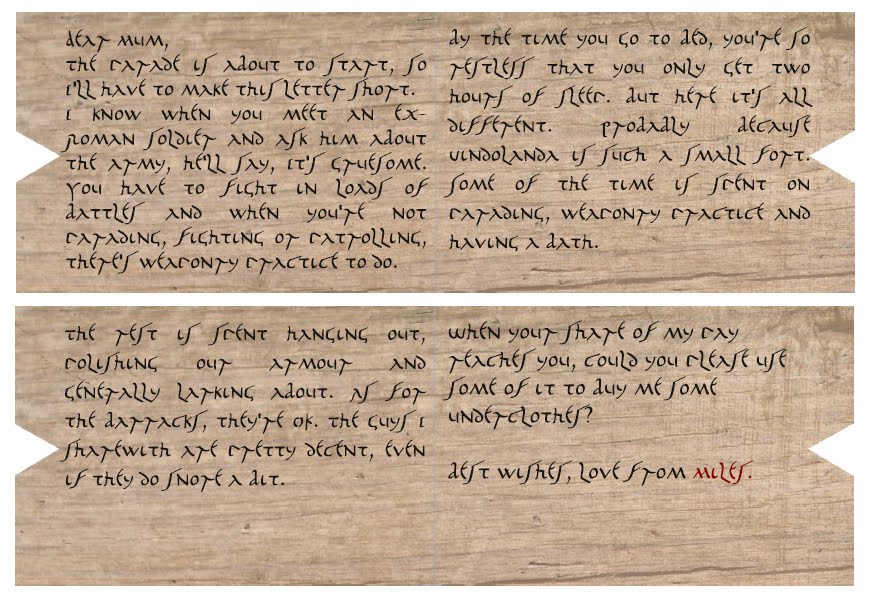 Dear Mum,
The parade is about to start, so
I'll have to make this letter short.
I know when you meet an ex-
Roman soldier and ask him about
the army, he'll say, it's gruesome.
You have to fight in loads of
battles and when you're not
parading, fighting or patrolling,
there's weaponry practice to do.
By the time you go to bed, you're so
restless that you only get two
hours of sleep. But here it's all
different. Probably because
Vindolanda is such a small fort.
Some of the time is spent on
parading, weaponry practice and
having a bath.
The rest is spent hanging out,
polishing our armour and
generally larking about. As for
the barracks, they're ok. The guys I
sharewith are pretty decent, even
if they do snore a bit.
When your share of my pay
reaches you, could you please use
some of it to buy me some
underclothes?
Best wishes, love from Miles.